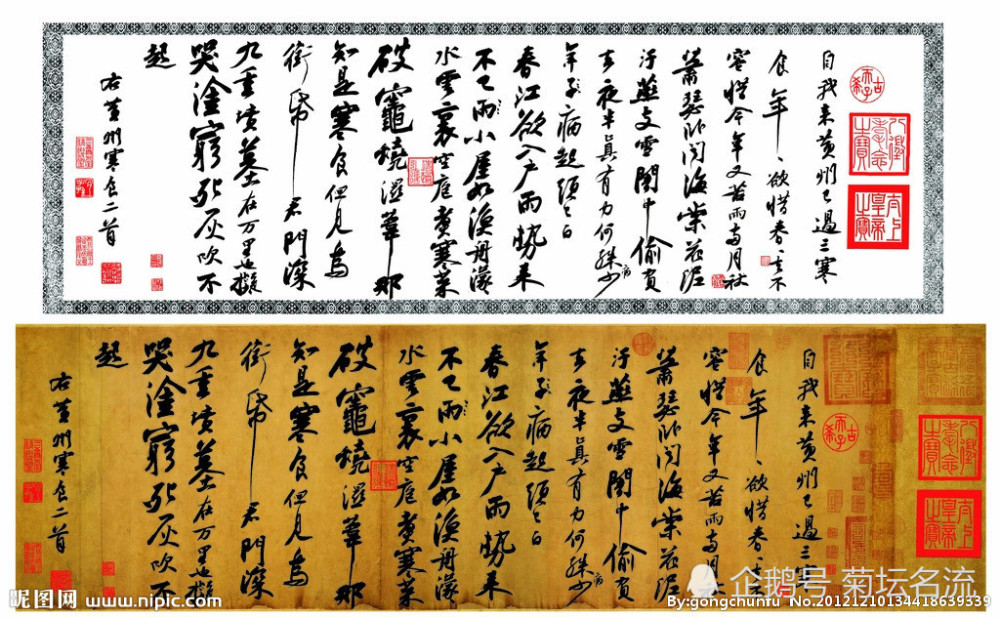 自我来黄州已過三寒
食年〻欲惜春〻去不
容惜今年又苦雨兩月秋
蕭瑟卧聞海棠花泥
汙燕支雪闇中偷負
去夜半真有力何殊少
病
年子病起頭已白
春江欲入户雨勢来
不已雨小屋如漁舟濛〻
水雲裏空庖煮寒菜
破竈燒濕葦那
知是寒食但見烏
銜帋君門深
九重墳墓在万里也擬
哭塗窮死灰吹不
起
右黄州寒食二首
古希天子
八徵耄念之寶
太上皇帝之寶
自我来黄州已過三寒
食年〻欲惜春〻去
容惜今年又苦雨兩月
蕭瑟卧聞海棠花泥
汙燕支雪闇中偷負
去夜半真有力何殊少
病
年子病起頭已白
春江欲入户雨勢来
不已雨小屋如漁舟濛〻
水雲裏空庖煮寒菜
破竈燒濕葦那
知是寒食但見烏
銜帋君門深
九重墳墓在万里也擬
哭塗窮死灰吹不
起
右黄州寒食二首
古希天子
八徵耄念之寶
太上皇帝之寶
企鹅号 菊坛名流
昵图网 www.nipic.com
By:gongchunfu No.20121210134418639339